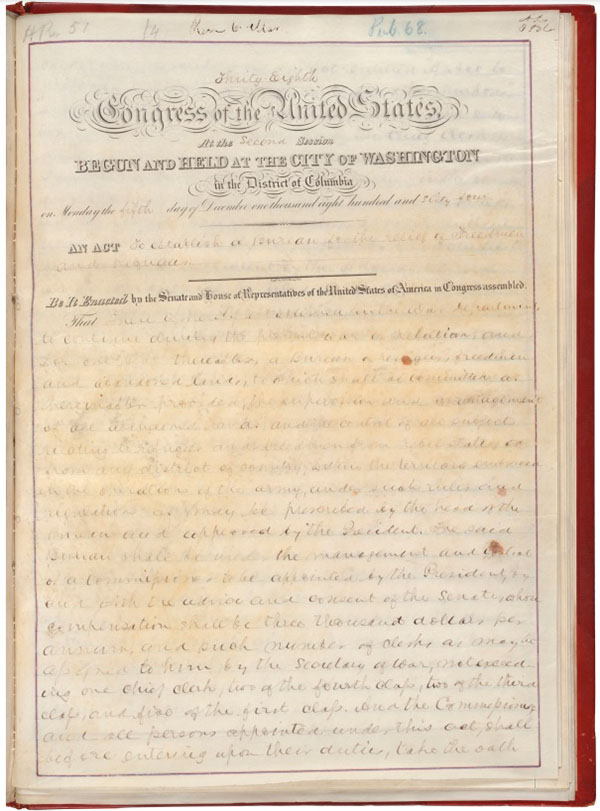 HR. 51
14
Pub 68.
Thirty Eighth
Congress of the United States,
At the Second Session
BEGUN AND HELD AT THE CITY OF WASHINGTON
in the District of Columbia
on Monday the fifth day of December one thousand eight hundred and sixty four
AN ACT To establish a Bureau for the relief of Freedmen
and Refugees
Be It Enacted by the Senate and House of Representatives of the United States of America in Congress assembled,
That there is established in the War Department,
to continue during the present war of rebellion, and
for one year thereafter, a bureau of refugees, freedmen
and abandoned lands, to which shall be committed, as
hereinafter provided, the supervision and management
of all abandoned lands and the control of all subjects
relating to refugees and freedmen from rebel states, or
from any district of country within the territory embraced
in the operations of the army, under such rules and
regulations as may be prescribed by the head of the
bureau and approved by the President. The said
Bureau shall be under the management and control
of a Commissioner to be appointed by the President, by
and with the advice and consent of the Senate, whose
compensation shall be three thousand dollars per
annum, and such number of clerks as may be
assigned to him by the Secretary of War, not exceed-
ing one chief clerk, two of the fourth class, two of the third
class, and five of the first class. And the Commissioner
and all persons appointed under this act, shall
before entering upon their duties, take the oath